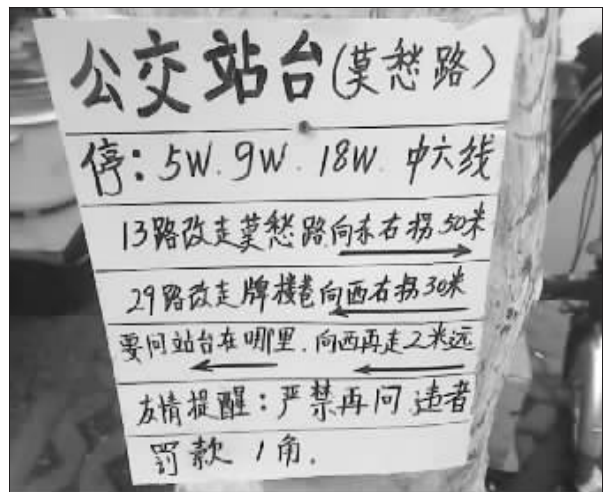 公交站台(莫愁路)
停:5W.9W.18W.中六线
13路改走莫愁路向东右拐50米
29路改走牌楼巷向西右拐30米
要问站台在哪里.向西再走2米远
友情提醒:严禁再问违者
罚款1角.